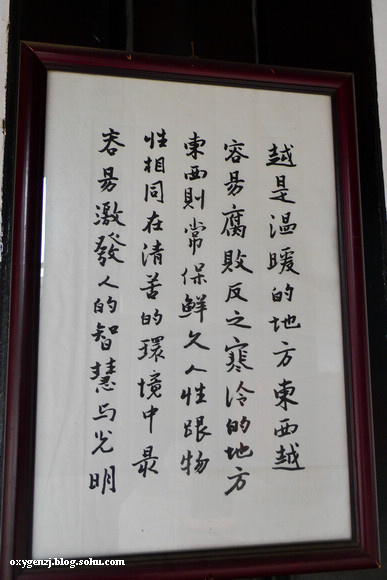 越是温暖的地方東西越
容易腐敗反之寒冷的地方
東西則常保鮮久人性跟物
性相同在清苦的環境中最
容易激發人的智慧与光明
oxygenzj.blog.sohu.com